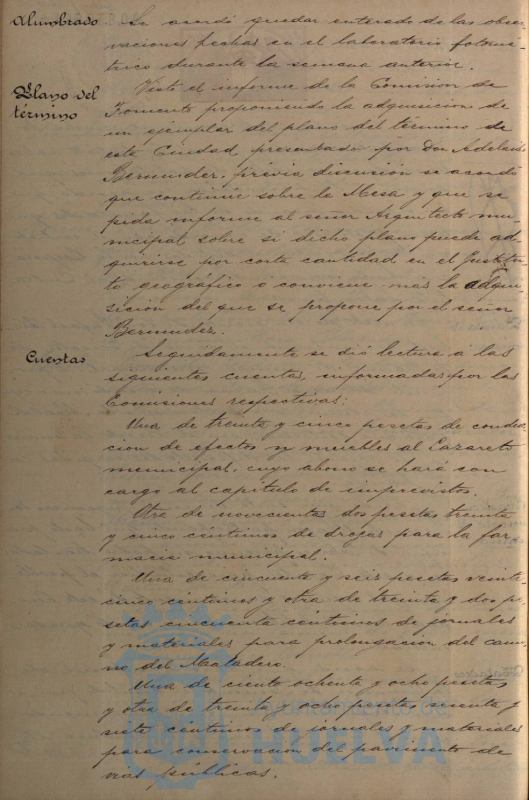 Alumbrado
Se acordó quedar enterado de las obser-
vaciones hechas en el laboratorio fotomé-
trico durante la semana anterior.
Plano del
término
Visto el informe de la Comision de
Fomento proponiendo la adquisicion de
un ejemplar del plano del término de
esta Ciudad, presentado por Don Adelaido
Bermudez, prévia discusión se acordó
que continúe sobre la Mesa y que se
pida informe al señor Arquitecto mu-
nicipal sobre si dicho plano puede ad-
quirirse por corta cantidad en el Institu-
to geográfico ó conviene más la adqui-
sicion del que se propone por el señor
Bermudez.
Cuentas
Seguidamente se dió lectura á las
siguientes cuentas, informadas por las
Comisiones respectivas:
Una de treinta y cinco pesetas de conduc-
cion de efectos y muebles al Lazareto
municipal, cuyo abono se hará con
cargo al capítulo de imprevistos.
Otra de novecientas dos pesetas treinta
y cinco céntimos de drogas para la far-
macia municipal.
Una de cincuenta y seis pesetas veinte
cinco céntimos y otra de treinta y dos pe-
setas cincuenta céntimos de jornales
y materiales para prolongacion del cami-
no del Matadero.
Una de ciento ochenta y ocho pesetas
y otra de treinta y ocho pesetas sesenta y
siete céntimos de jornales y materiales
para conservacion del pavimento de
vias públicas.
HUELVA